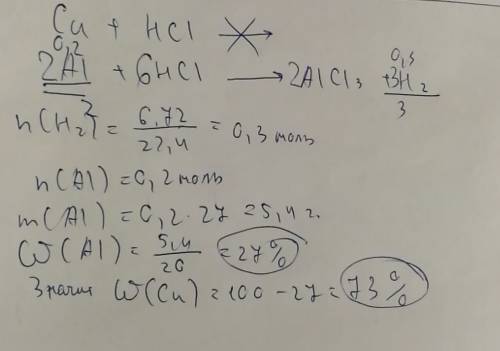 Cu + HCl ↛
0,2 0,3
2Al + 6HCl → 2AlCl₃ + 3H₂
2 3
n(H₂) = 6,72/22,4 = 0,3 моль
n(Al) = 0,2 моль
m(Al) = 0,2 · 27 = 5,4 г.
ω(Al) = 5,4/20 = 27%
Значит ω(Cu) = 100 - 27 = 73%